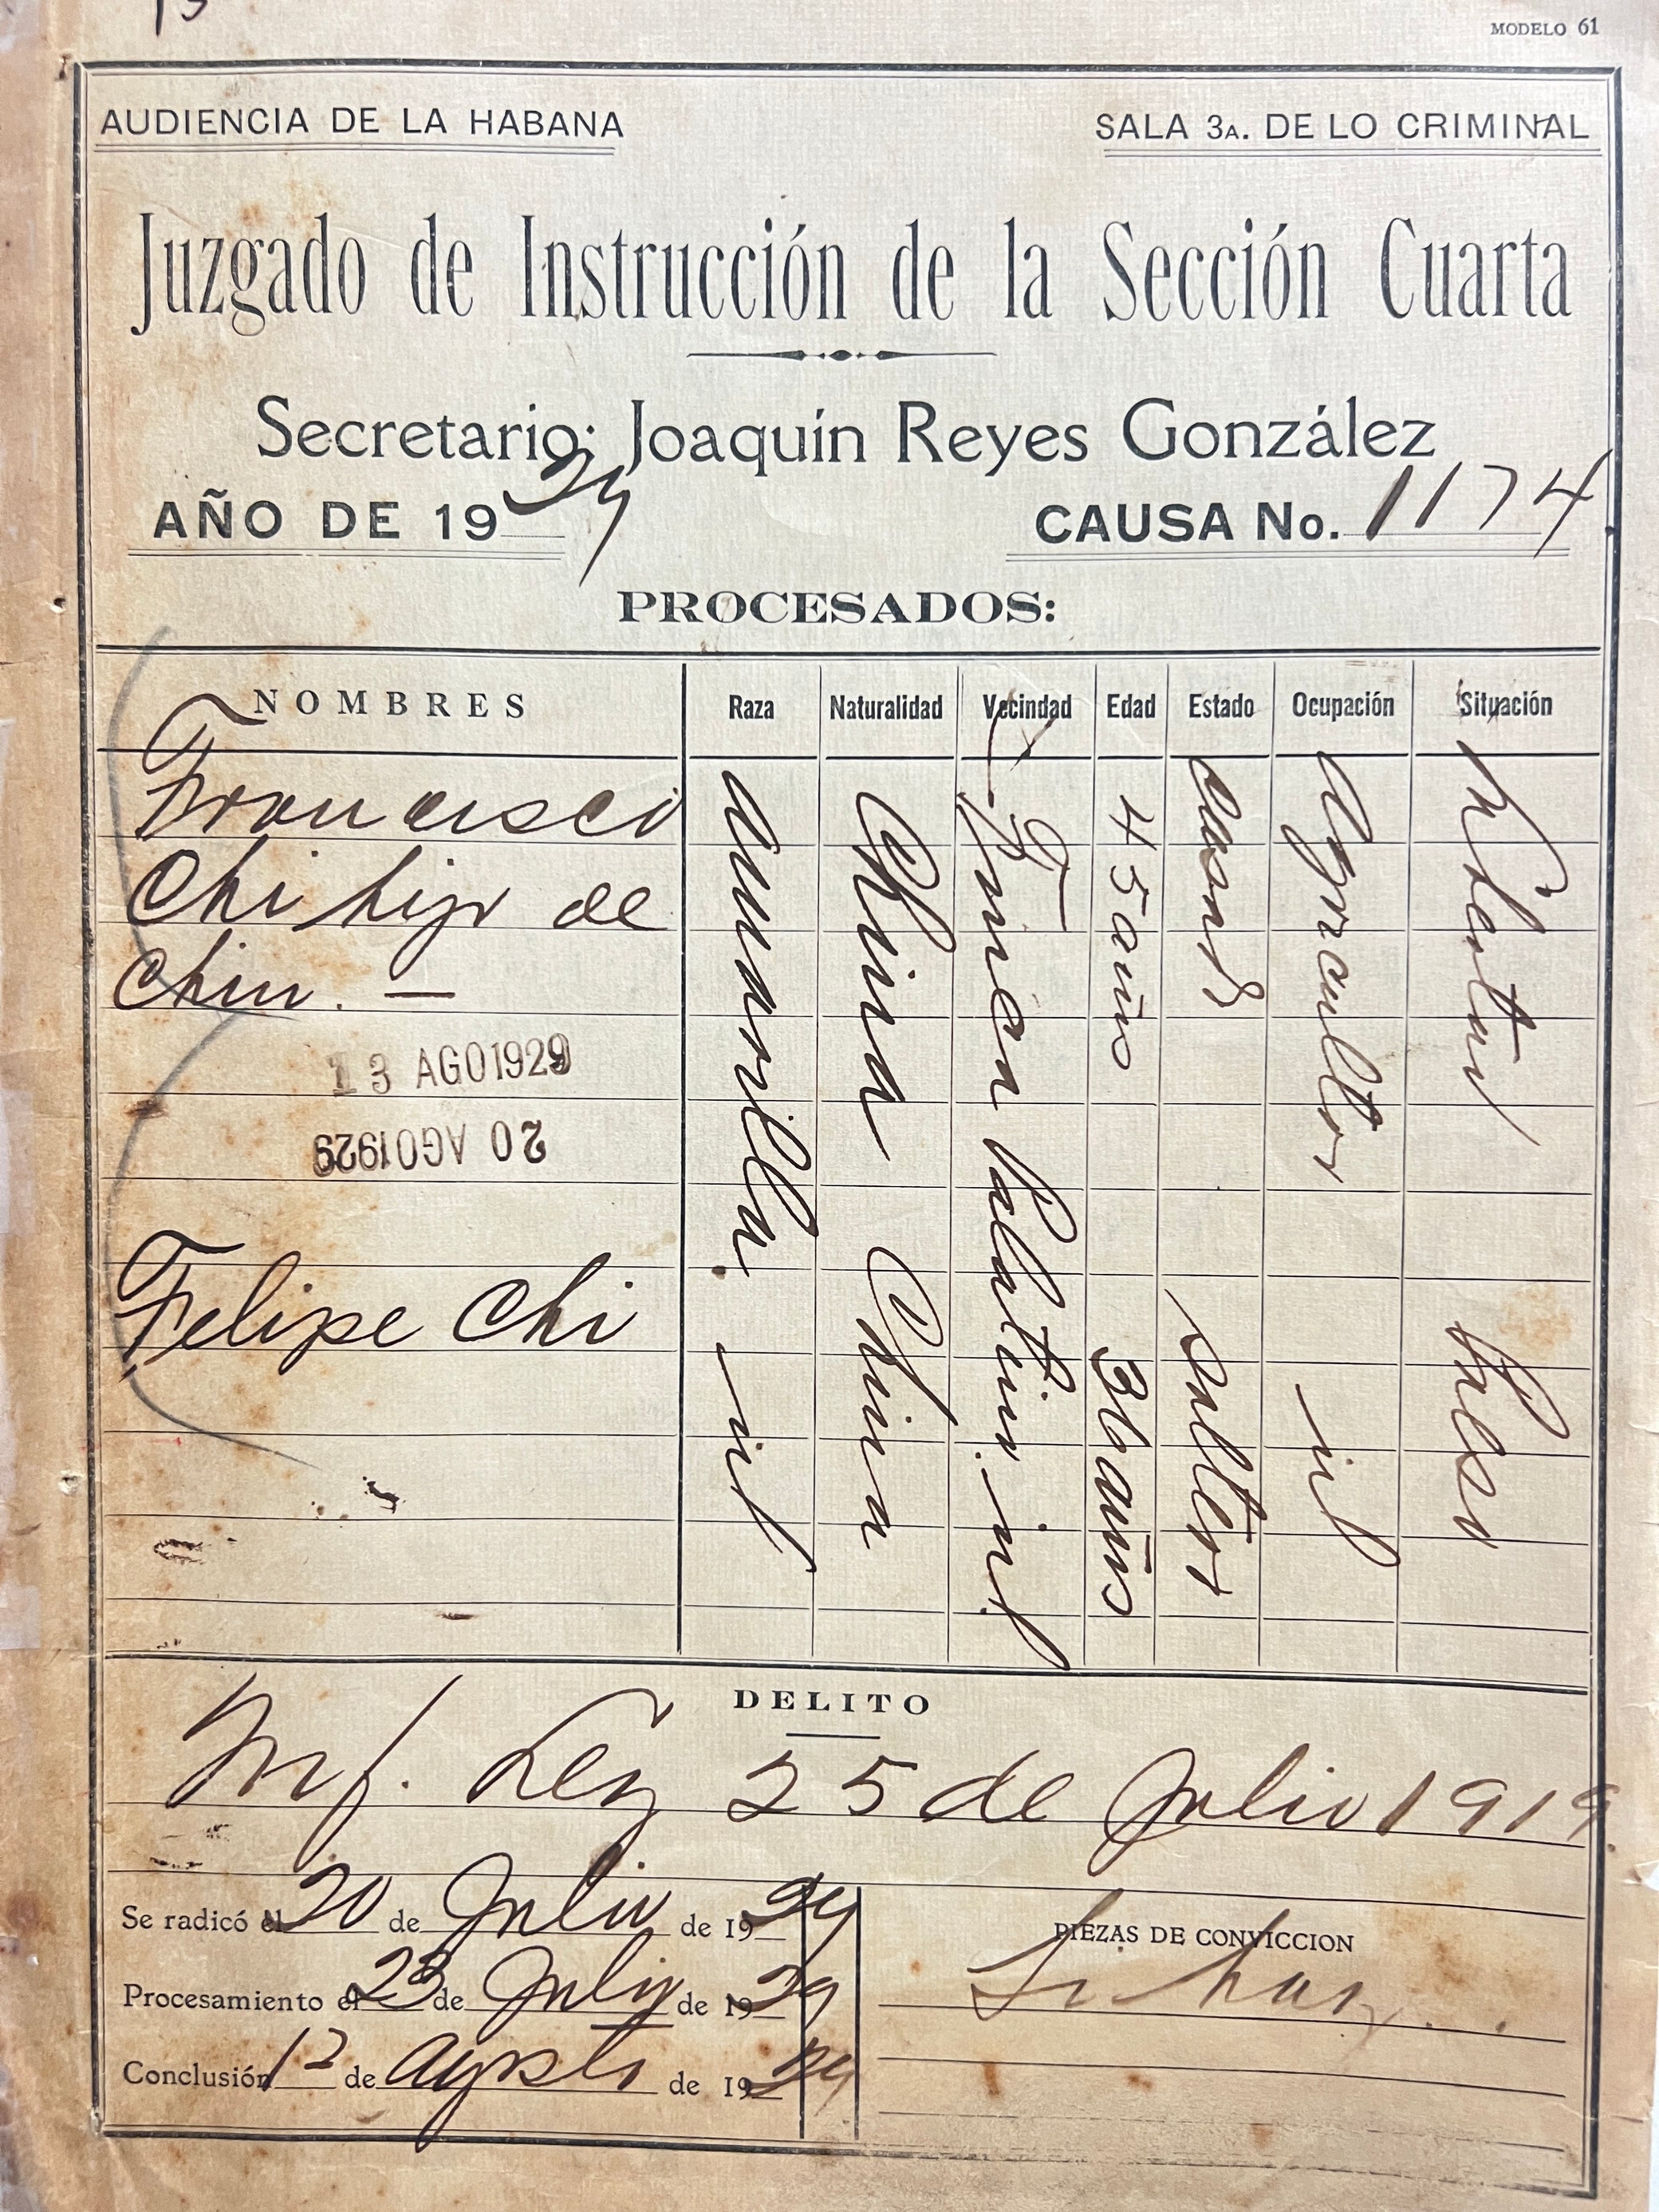 MODELO 61
AUDIENCIA DE LA HABANA
SALA 3A. DE LO CRIMINAL
Juzgado de Instrucción de la Sección Cuarta
Secretario: Joaquín Reyes González
AÑO DE 1929
CAUSA No. 1174
PROCESADOS:
NOMBRES Raza Naturalidad Vecindad Edad Estado Ocupación Situación
Francisco
Chi hijo de
Chin. —
Amarilla
China
Finca Palatino
45 años
Casado
Agricultor
Libertad
13 AGO 1929
20 AGO 1929
Felipe Chi
id
China
id
36 años
Soltero
id
Preso
DELITO
Inf. Ley 25 de Julio 1919.
Se radicó el 20 de Julio de 1929
Procesamiento el 23 de Julio de 1929
Conclusión 12 de Agosto de 1929
PIEZAS DE CONVICCION
Si hay.